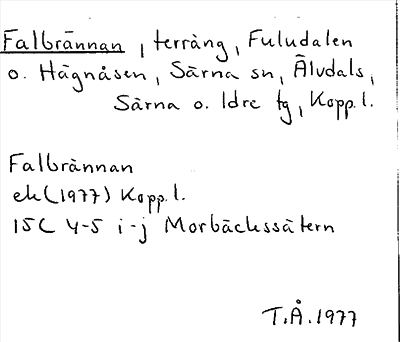 Falbrännan, terräng, Fuludalen
o. Hägnåsen, Särna sn, Älvdals,
Särna o. Idre tg, Kopp. l.
Falbrännan
ek (1977) Kopp. l.
15C 4-5 i-j Morbäckssätern
T.Å. 1977